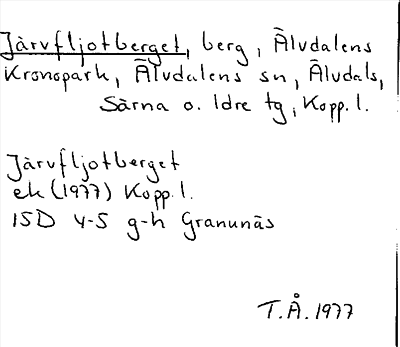 Järvfljotberget, berg, Älvdalens
Kronopark, Älvdalens sn, Älvdals,
Särna o. Idre tg, Kopp. l.
Järvfljotberget
ek (1977) Kopp. l.
15D 4-5 g-h Granunäs
T.Å. 1977